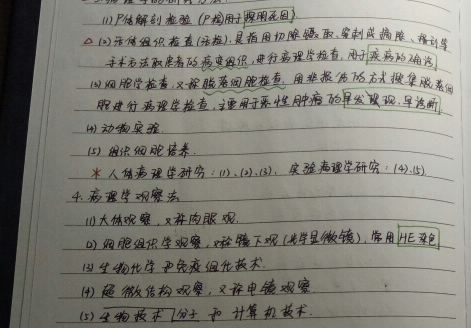 (1) 尸体解剖检验 (尸检) 用于探明死因
△ (2) 活体组织检查 (活检), 是指用切除、钳取、穿刺或摘除、搔刮等
手术方法取患者的病变组织, 进行病理学检查, 用于疾病的确诊
(3) 细胞学检查, 又称脱落细胞检查, 用非损伤的方式搜集脱落细
胞进行病理学检查, 主要用于恶性肿瘤的早发现、早诊断
(4) 动物实验
(5) 组织细胞培养
* 人体病理学研究: (1)、(2)、(3), 实验病理学研究: (4)、(5)
4. 病理学观察法
(1) 大体观察, 又称肉眼观.
(2) 细胞组织学观察, 又称镜下观 (光学显微镜), 常用HE染色
(3) 生物化学和免疫组化技术.
(4) 超微结构观察, 又称电镜观察
(5) 生物技术 [分子 和 计算机技术.